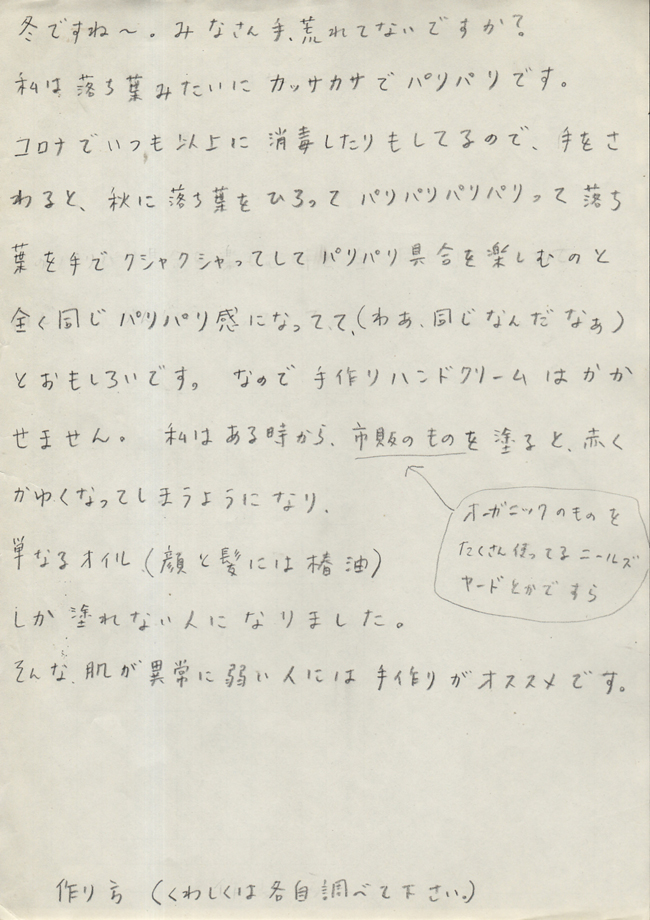 冬ですね〜。みなさん手、荒れてないですか?
私は落ち葉みたいにカッサカサでパリパリです。
コロナでいつも以上に消毒したりもしてるので、手をさ
わると、秋に落ち葉をひろってパリパリパリパリって落ち
葉を手でクシャクシャってしてパリパリ具合を楽しむのと
全く同じパリパリ感になってて、(わあ、同じなんだなぁ)
とおもしろいです。なので手作りハンドクリームはかか
せません。私はある時から、市販のものを塗ると、赤く
かゆくなってしまうようになり、
オーガニックのものを
たくさん使ってるニールズ
ヤードとかですら
単なるオイル(顔と髪には椿油)
しか塗れない人になりました。
そんな、肌が異常に弱い人には手作りがオススメです。
作り方(くわしくは各自調べて下さい。)